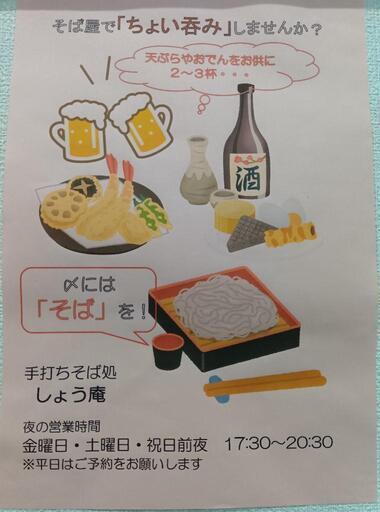 そば屋で「ちょい呑み」しませんか？
天ぷらやおでんをお供に
2～3杯・・・
酒
〆には
「そば」を！
手打ちそば処
しょう庵
夜の営業時間
金曜日・土曜日・祝日前夜　17:30～20:30
※平日はご予約をお願いします